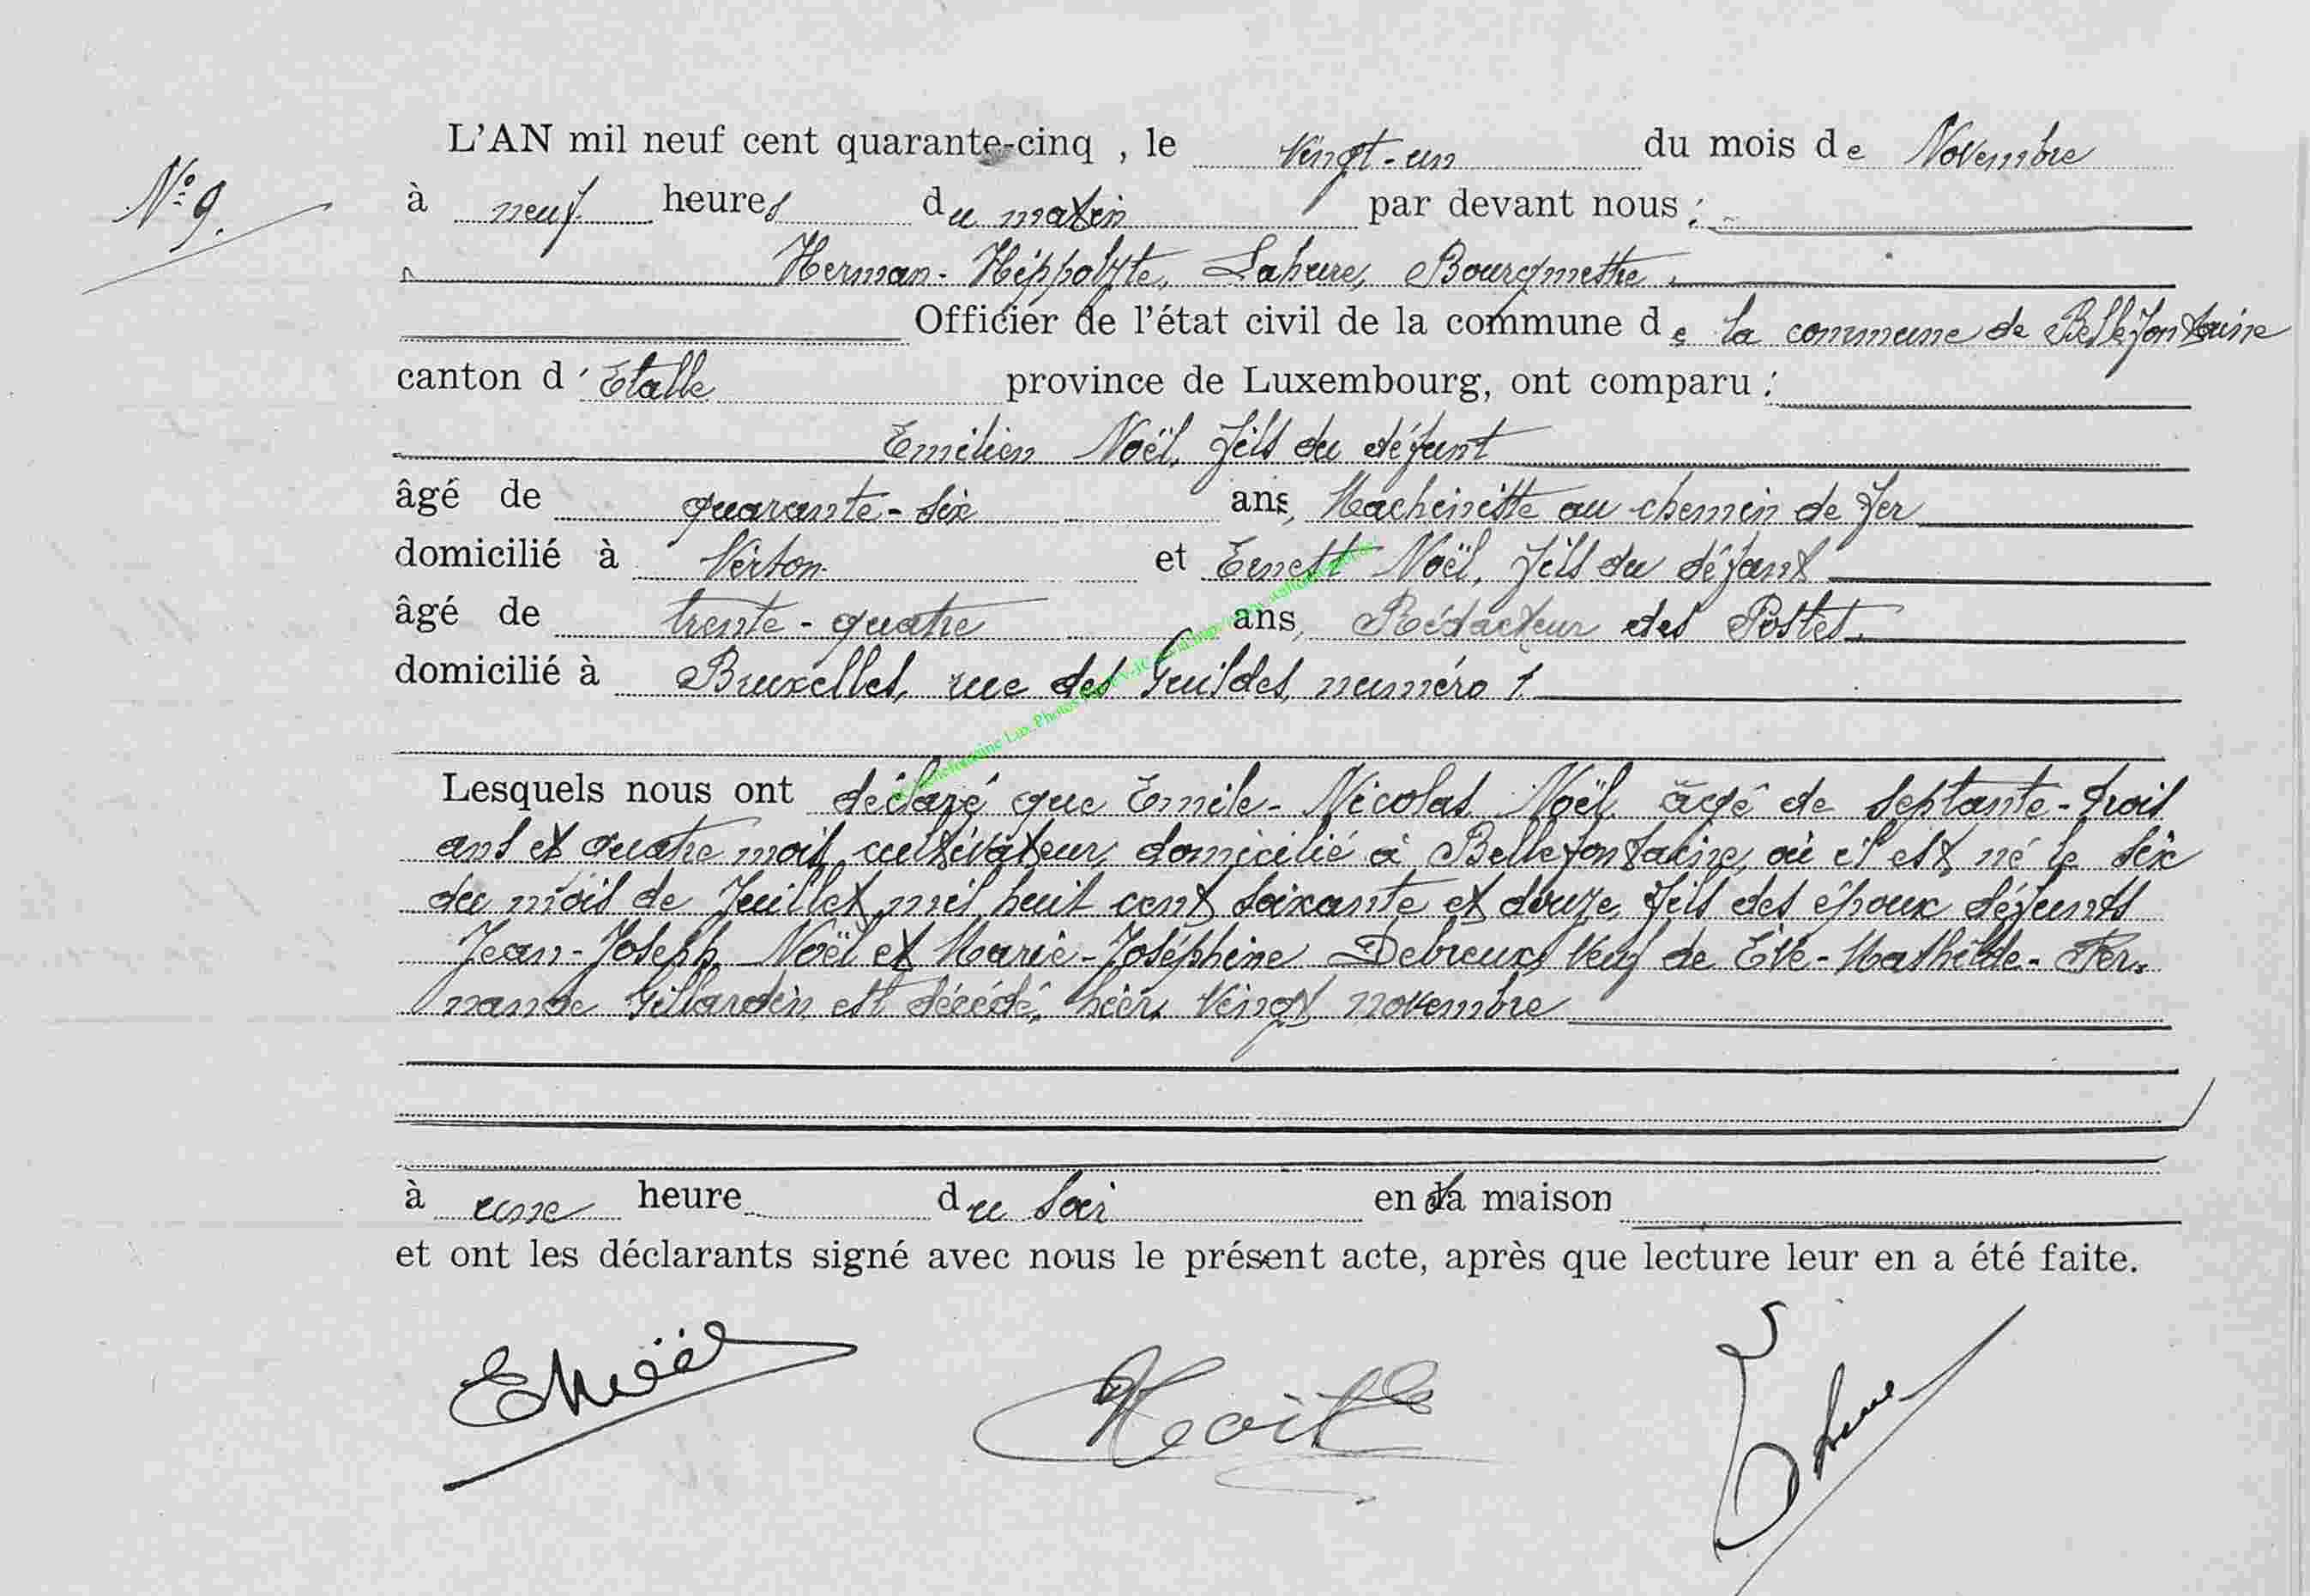 L'AN mil neuf cent quarante-cinq , le vingt-un du mois de Novembre
N° 9.
à neuf heures du matin par devant nous :
Herman-Hippolyte, Lahure, Bourgmestre,
Officier de l'état civil de la commune de la commune de Bellefontaine
canton d'Etalle province de Luxembourg, ont comparu :
Emilien Noël, fils du défunt
âgé de quarante-six ans, Machiniste au chemin de fer
domicilié à Virton et Ernest Noël, fils du défunt
âgé de trente-quatre ans, Rédacteur des Postes,
domicilié à Bruxelles, rue des Guildes, numéro 1
Lesquels nous ont déclaré que Emile-Nicolas Noël, âgé de septante-trois
ans et quatre mois, cultivateur, domicilié à Bellefontaine, où il est né le six
du mois de Juillet mil huit cent soixante et douze, fils des époux défunts
Jean-Joseph Noël et Marie-Joséphine Debreux, Veuf de Eve-Mathilde-Fer-
nande Gillardin, est décédé, hier, vingt novembre
à une heure du soir en sa maison
et ont les déclarants signé avec nous le présent acte, après que lecture leur en a été faite.
ENoël